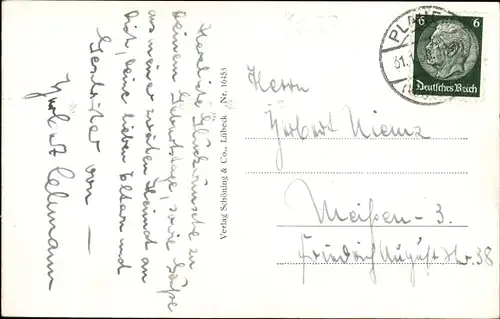 Herzliche Glückwünsche zu
Deinem Geburtstage, sowie Grüße
aus meiner zweiten Heimat an
Dich, Deine lieben Eltern und
Geschwister von —
Herbert Lehmann
Verlag Schöning & Co., Lübeck Nr. 16453
PLAUE
31.1
6 6
Deutsches Reich
Herrn
Herbert Nienz
Meißen - 3.
Friedrich August Str. 38